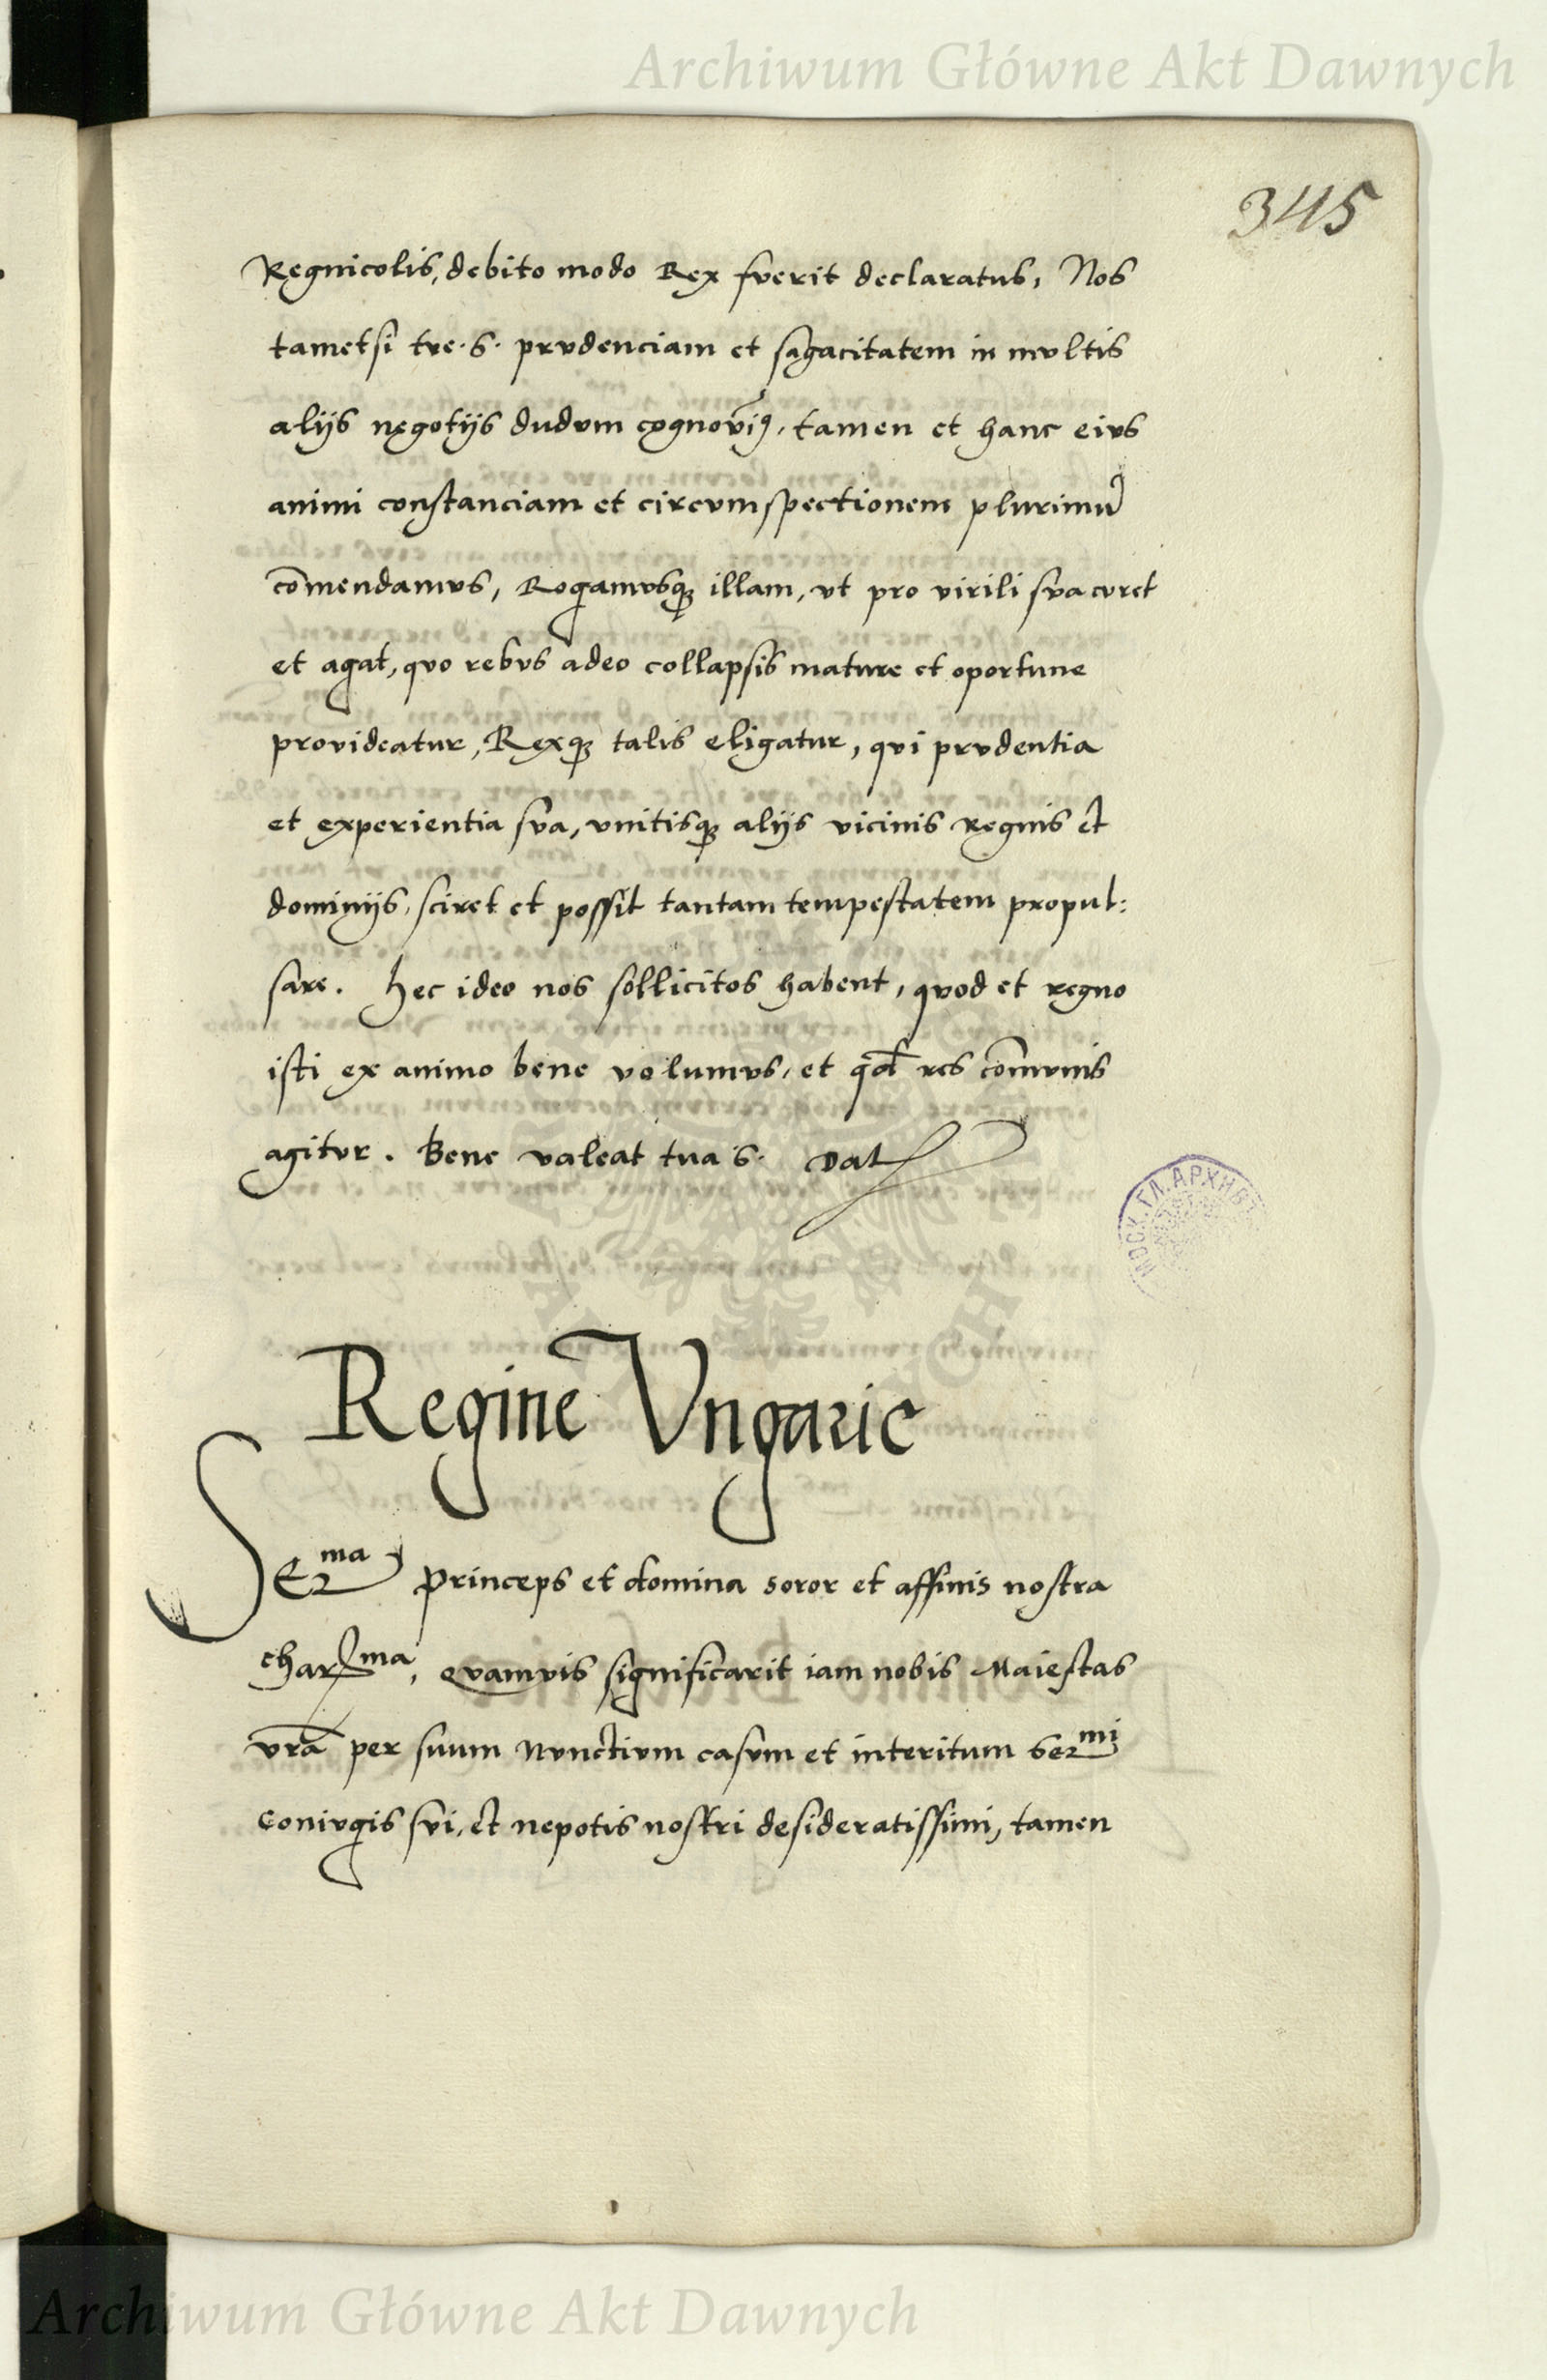 Archiwum Główne Akt Dawnych
345
Regnicolis, debito modo Rex fverit declaratus, Nos
tametsi tve. S. prvdenciam et sagacitatem in mvltis
alijs negotijs dudvm cognovīꝰ, tamen et hanc eivs
animi constanciam et circvmspectionem plurimū
cōmendamvs, Rogamvsqꝫ illam, vt pro virili sva cvret
et agat, qvo rebvs adeo collapsis mature et oportune
provideatur, Rexqꝫ talis eligatur, qvi prvdentia
et experientia sva, vnitisqꝫ alijs vicinis regnis et
dominijs, sciret et possit tantam tempestatem propul:
sare. Hec ideo nos sollicitos habent, qvod et regno
isti ex animo bene volumvs, et qd res cōmvnis
agitvr. Bene valeat tua S. Dat
МОСК. ГЛ. АРХИВЪ
Regine Vngarie
Serma princeps et domina soror et affinis nostra
charma, Qvamvis significarit iam nobis Maiestas
vrā per suum Nvnctivm casvm et interitum Sermi
Conivgis svi, et nepotis nostri desideratissimi, tamen
Archiwum Główne Akt Dawnych